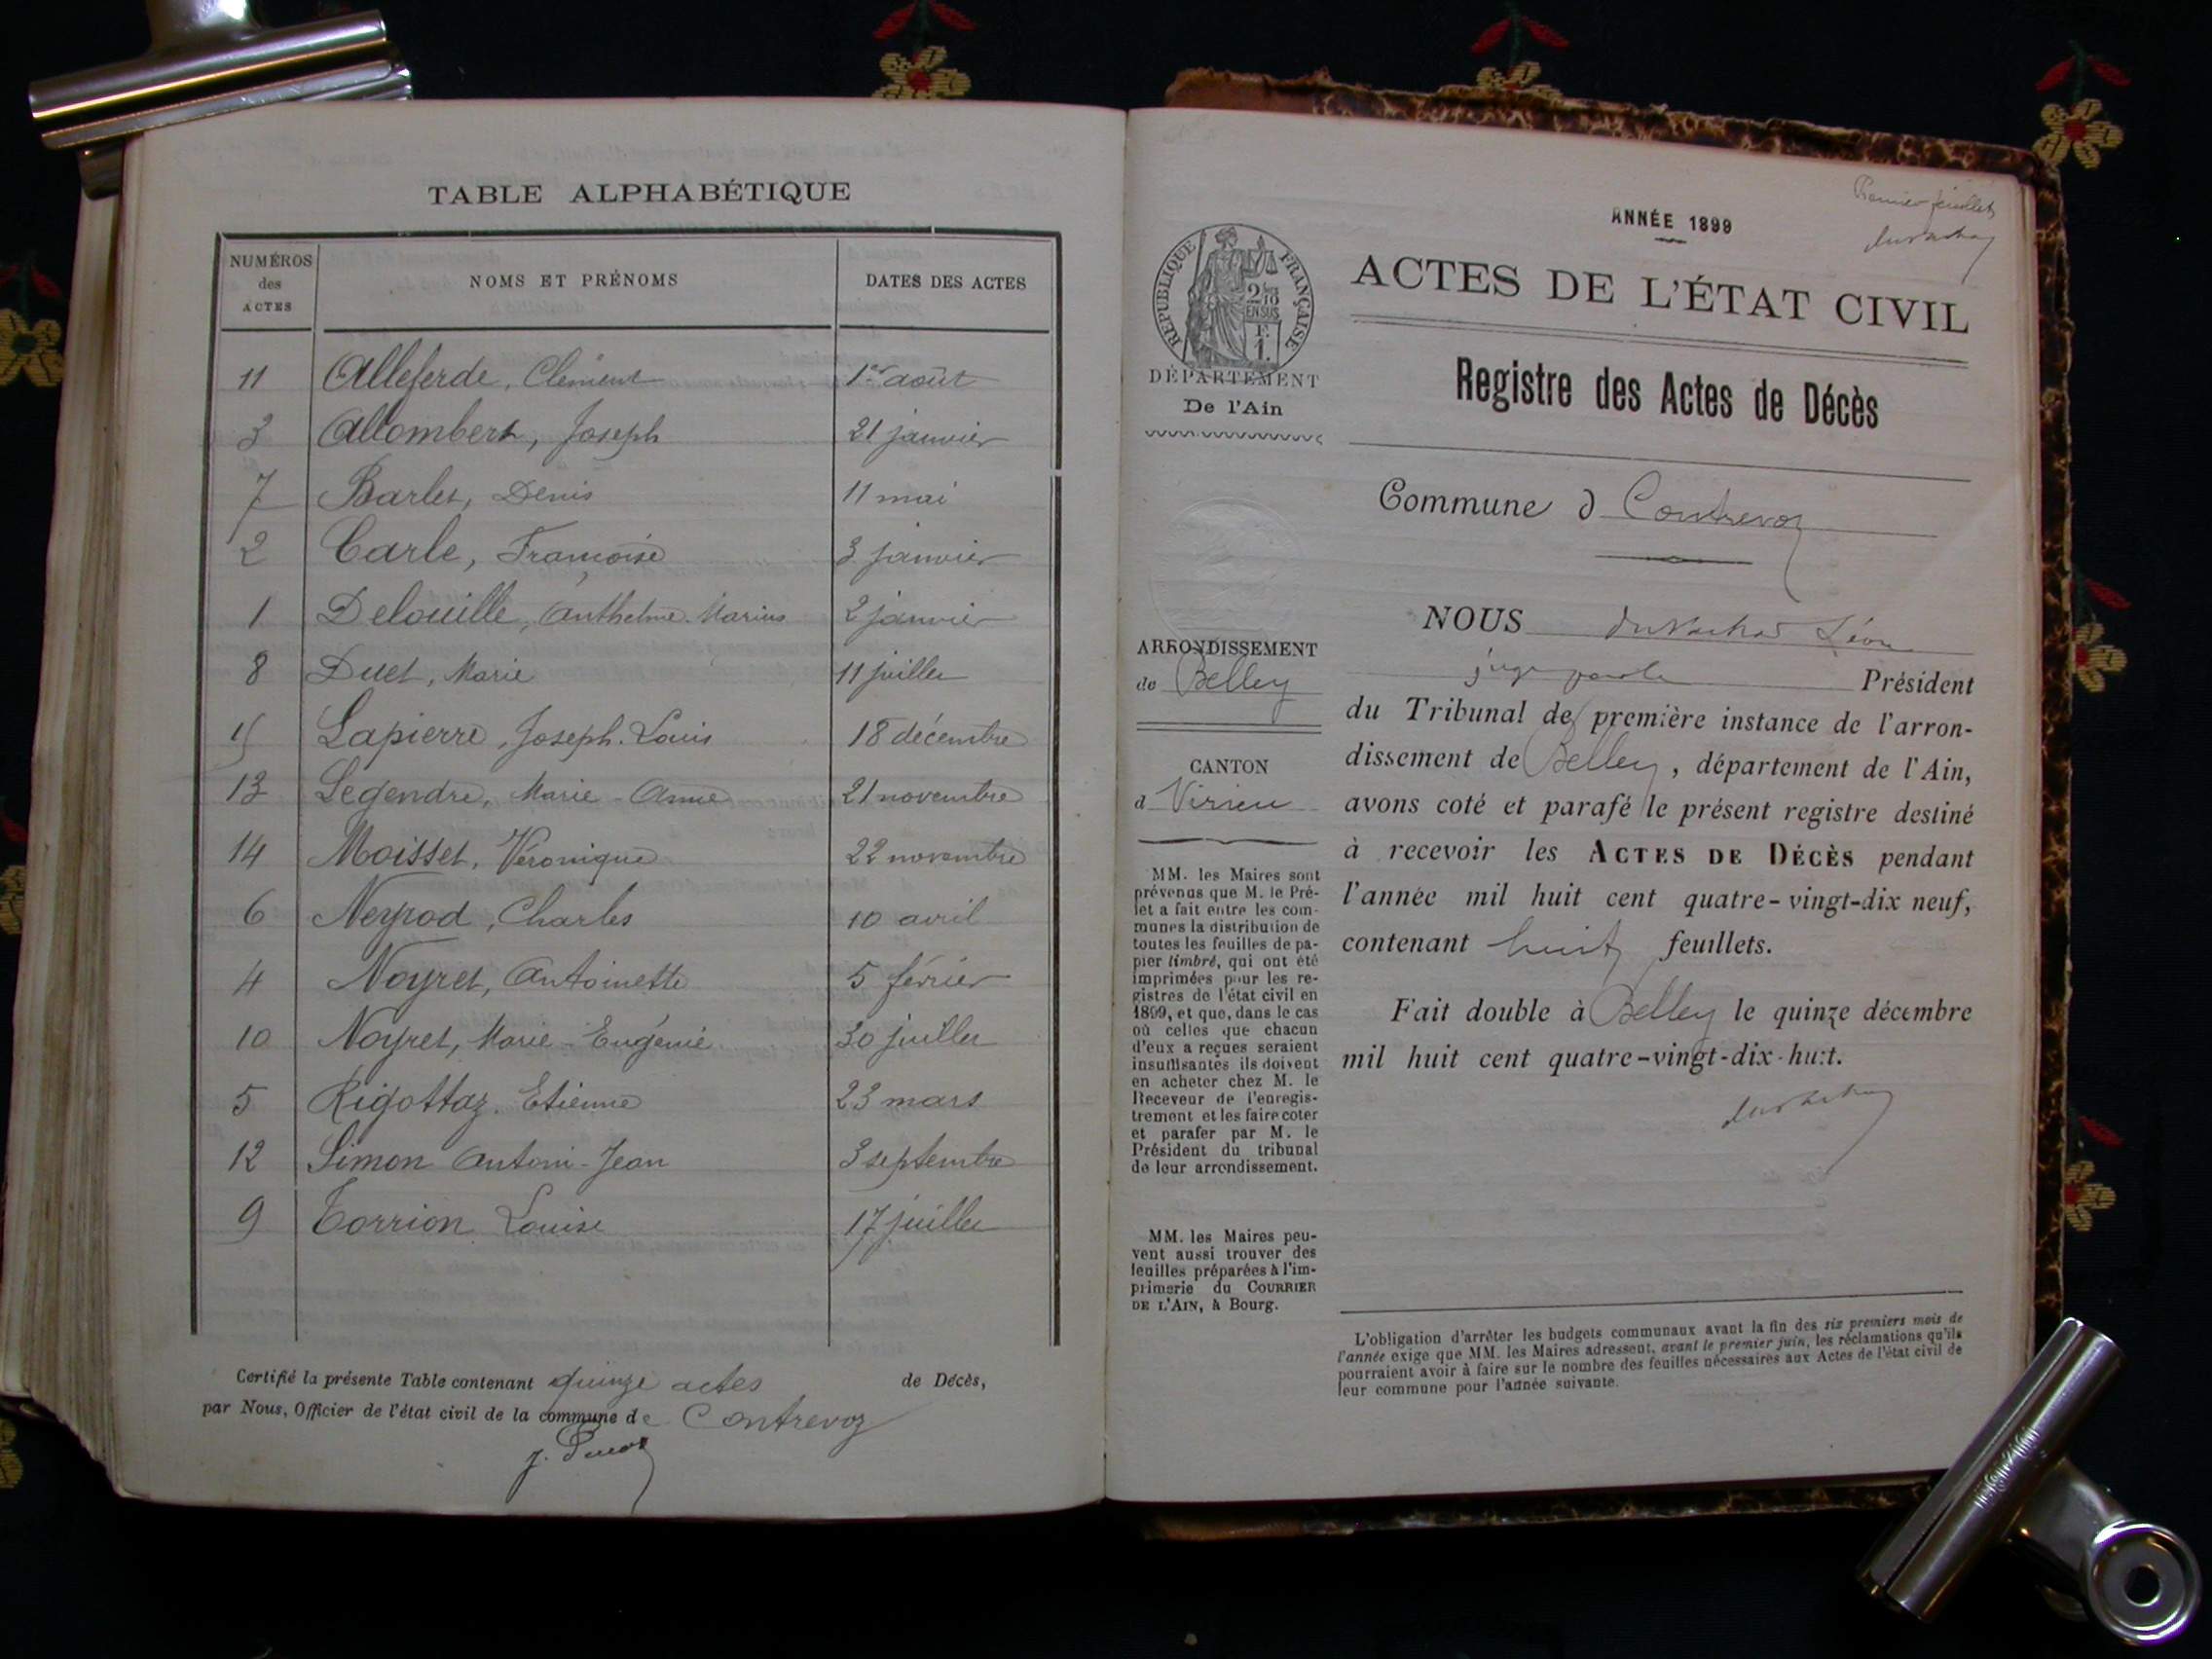 TABLE ALPHABÉTIQUE
NUMÉROS des ACTES NOMS ET PRÉNOMS DATES DES ACTES
11 Alleferde, Clément 1er août
3 Allombert, Joseph 21 janvier
7 Barlet, Denis 11 mai
2 Carle, Françoise 3 janvier
1 Delouille, Anthelme-Marius 2 janvier
8 Duet, Marie 11 juillet
15 Lapierre, Joseph-Louis 18 décembre
13 Legendre, Marie-Anne 21 novembre
14 Moisset, Véronique 22 novembre
6 Neyrod, Charles 10 avril
4 Noyret, Antoinette 5 février
10 Noyret, Marie-Eugénie 30 juillet
5 Rigottaz, Etienne 23 mars
12 Simon Antoni-Jean 3 septembre
9 Torrion Louise 17 juillet
Certifié la présente Table contenant quinze actes de Décès,
par Nous, Officier de l'état civil de la commune de Contrevoz
Premier feuillet
ANNÉE 1899
ACTES DE L'ÉTAT CIVIL
Registre des Actes de Décès
Commune d Contrevoz
NOUS Léon
Président
du Tribunal de première instance de l'arron-
dissement de Belley, département de l'Ain,
avons coté et parafé le présent registre destiné
à recevoir les ACTES DE DÉCÈS pendant
l'année mil huit cent quatre-vingt-dix neuf,
contenant huit feuillets.
Fait double à Belley le quinze décembre
mil huit cent quatre-vingt-dix-huit.
L'obligation d'arrêter les budgets communaux avant la fin des six premiers mois de
l'année exige que MM. les Maires adressent, avant le premier juin, les réclamations qu'ils
pourraient avoir à faire sur le nombre des feuilles nécessaires aux Actes de l'état civil de
leur commune pour l'année suivante.
RÉPUBLIQUE FRANÇAISE
2/10 EN SUS
F. 1.
DÉPARTEMENT
De l'Ain
ARRONDISSEMENT
de Belley
CANTON
d Virieu
MM. les Maires sont
prévenus que M. le Pré-
fet a fait entre les com-
munes la distribution de
toutes les feuilles de pa-
pier timbré, qui ont été
imprimées pour les re-
gistres de l'état civil en
1899, et que, dans le cas
où celles que chacun
d'eux a reçues seraient
insuffisantes ils doivent
en acheter chez M. le
Receveur de l'enregis-
trement et les faire coter
et parafer par M. le
Président du tribunal
de leur arrondissement.
MM. les Maires peu-
vent aussi trouver des
feuilles préparées à l'im-
primerie du COURRIER
DE L'AIN, à Bourg.